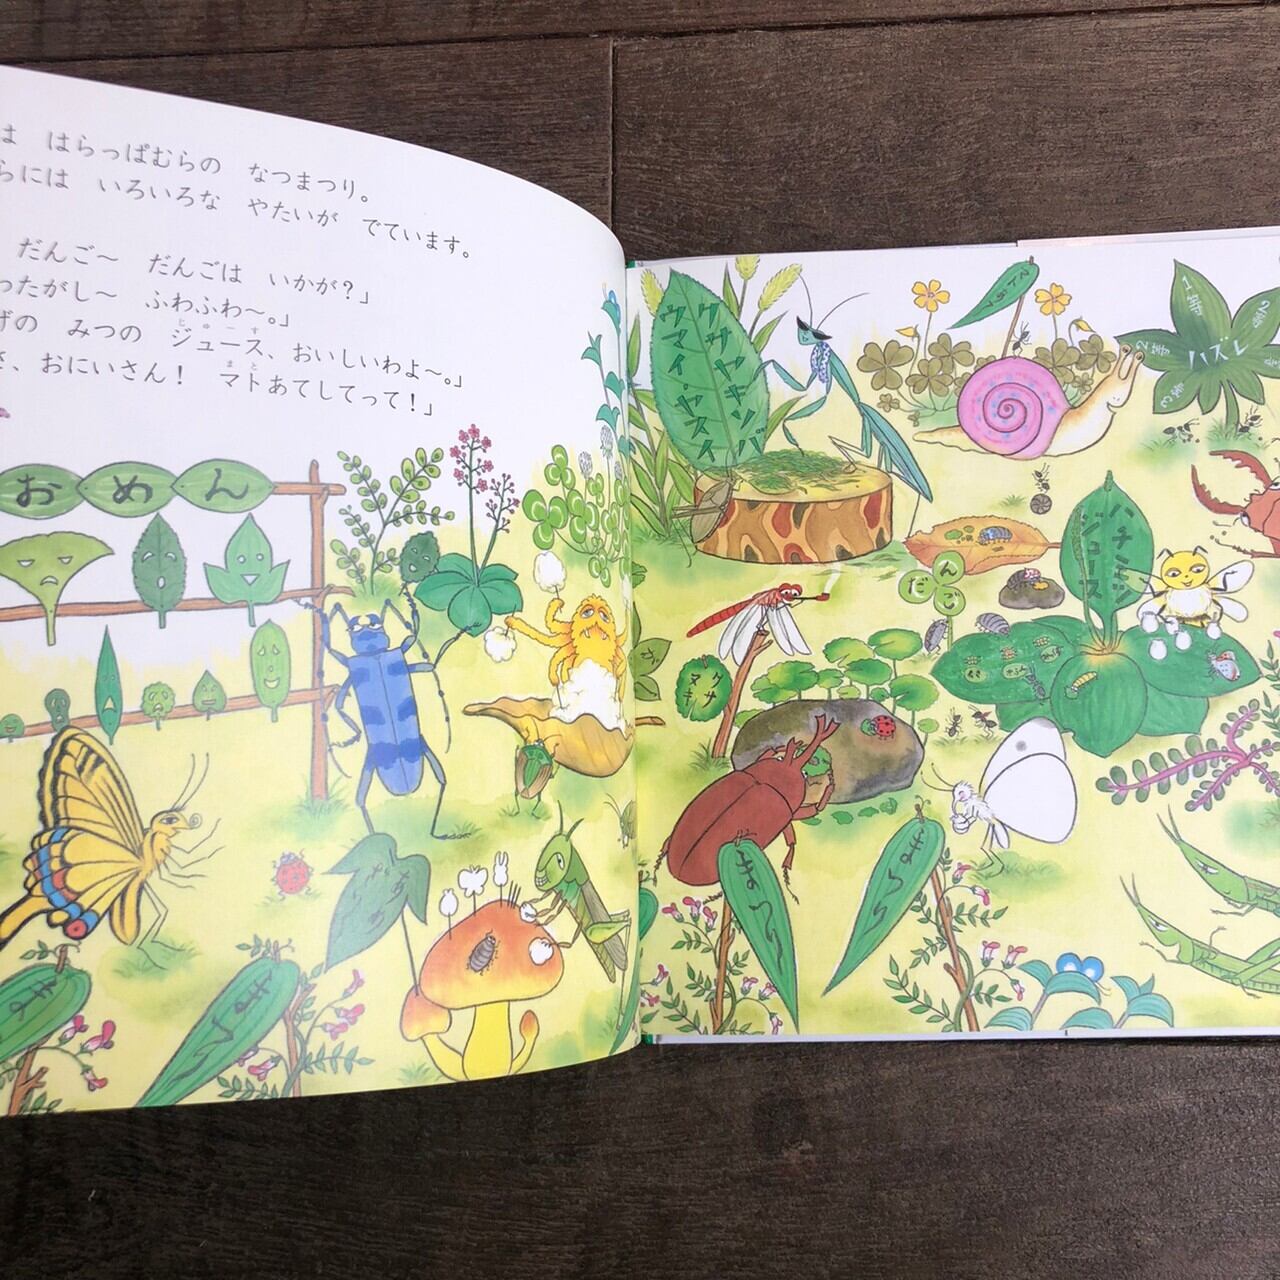 は　はらっぱむらの　なつまつり。
らには　いろいろな　やたいが　でています。
だんご〜　だんごは　いかが？」
ったがし〜　ふわふわ〜。」
げの　みつの　ジュース、おいしいわよ〜。」
さ、おにいさん！　マトあてしてって！」
おめん
クサヤキソバ
ウマイ・ヤスイ
ハズレ
1等
2等
3等
だんご
ハチミツ
ジュース
まつり
まつり